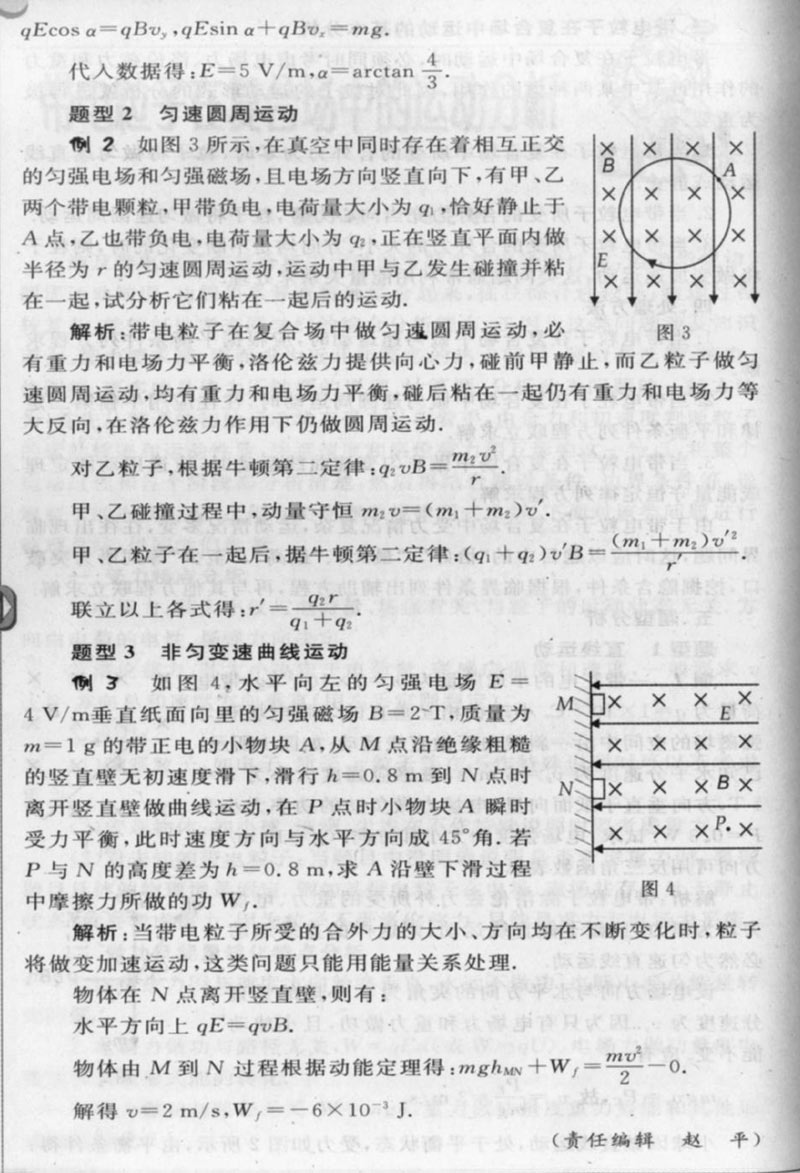 qEcos α=qBv_y,qEsin α+qBv_x=mg.
代人数据得:E=5 V/m,α=arctan 4/3.
题型2 匀速圆周运动
例2 如图3所示,在真空中同时存在着相互正交
的匀强电场和匀强磁场,且电场方向竖直向下,有甲、乙
两个带电颗粒,甲带负电,电荷量大小为q₁,恰好静止于
A点,乙也带负电,电荷量大小为q₂,正在竖直平面内做
半径为r的匀速圆周运动,运动中甲与乙发生碰撞并粘
在一起,试分析它们粘在一起后的运动.
B
A
E
图3
解析:带电粒子在复合场中做匀速圆周运动,必
有重力和电场力平衡,洛伦兹力提供向心力,碰前甲静止,而乙粒子做匀
速圆周运动,均有重力和电场力平衡,碰后粘在一起仍有重力和电场力等
大反向,在洛伦兹力作用下仍做圆周运动.
对乙粒子,根据牛顿第二定律:q₂vB=m₂v²/r.
甲、乙碰撞过程中,动量守恒m₂v=(m₁+m₂)v′.
甲、乙粒子在一起后,据牛顿第二定律:(q₁+q₂)v′B=(m₁+m₂)v′²/r′.
联立以上各式得:r′=q₂r/(q₁+q₂).
题型3 非匀变速曲线运动
例3 如图4,水平向左的匀强电场E=
4 V/m垂直纸面向里的匀强磁场B=2 T,质量为
m=1 g的带正电的小物块A,从M点沿绝缘粗糙
的竖直壁无初速度滑下,滑行h=0.8 m到N点时
离开竖直壁做曲线运动,在P点时小物块A瞬时
受力平衡,此时速度方向与水平方向成45°角.若
P与N的高度差为h=0.8 m,求A沿壁下滑过程
中摩擦力所做的功W_f.
M × × × ×
E
× × × ×
N × × × B ×
× × × P· ×
图4
解析:当带电粒子所受的合外力的大小、方向均在不断变化时,粒子
将做变加速运动,这类问题只能用能量关系处理.
物体在N点离开竖直壁,则有:
水平方向上qE=qvB.
物体由M到N过程根据动能定理得:mgh_MN+W_f=mv²/2-0.
解得v=2 m/s,W_f=-6×10⁻³ J.
(责任编辑 赵 平)